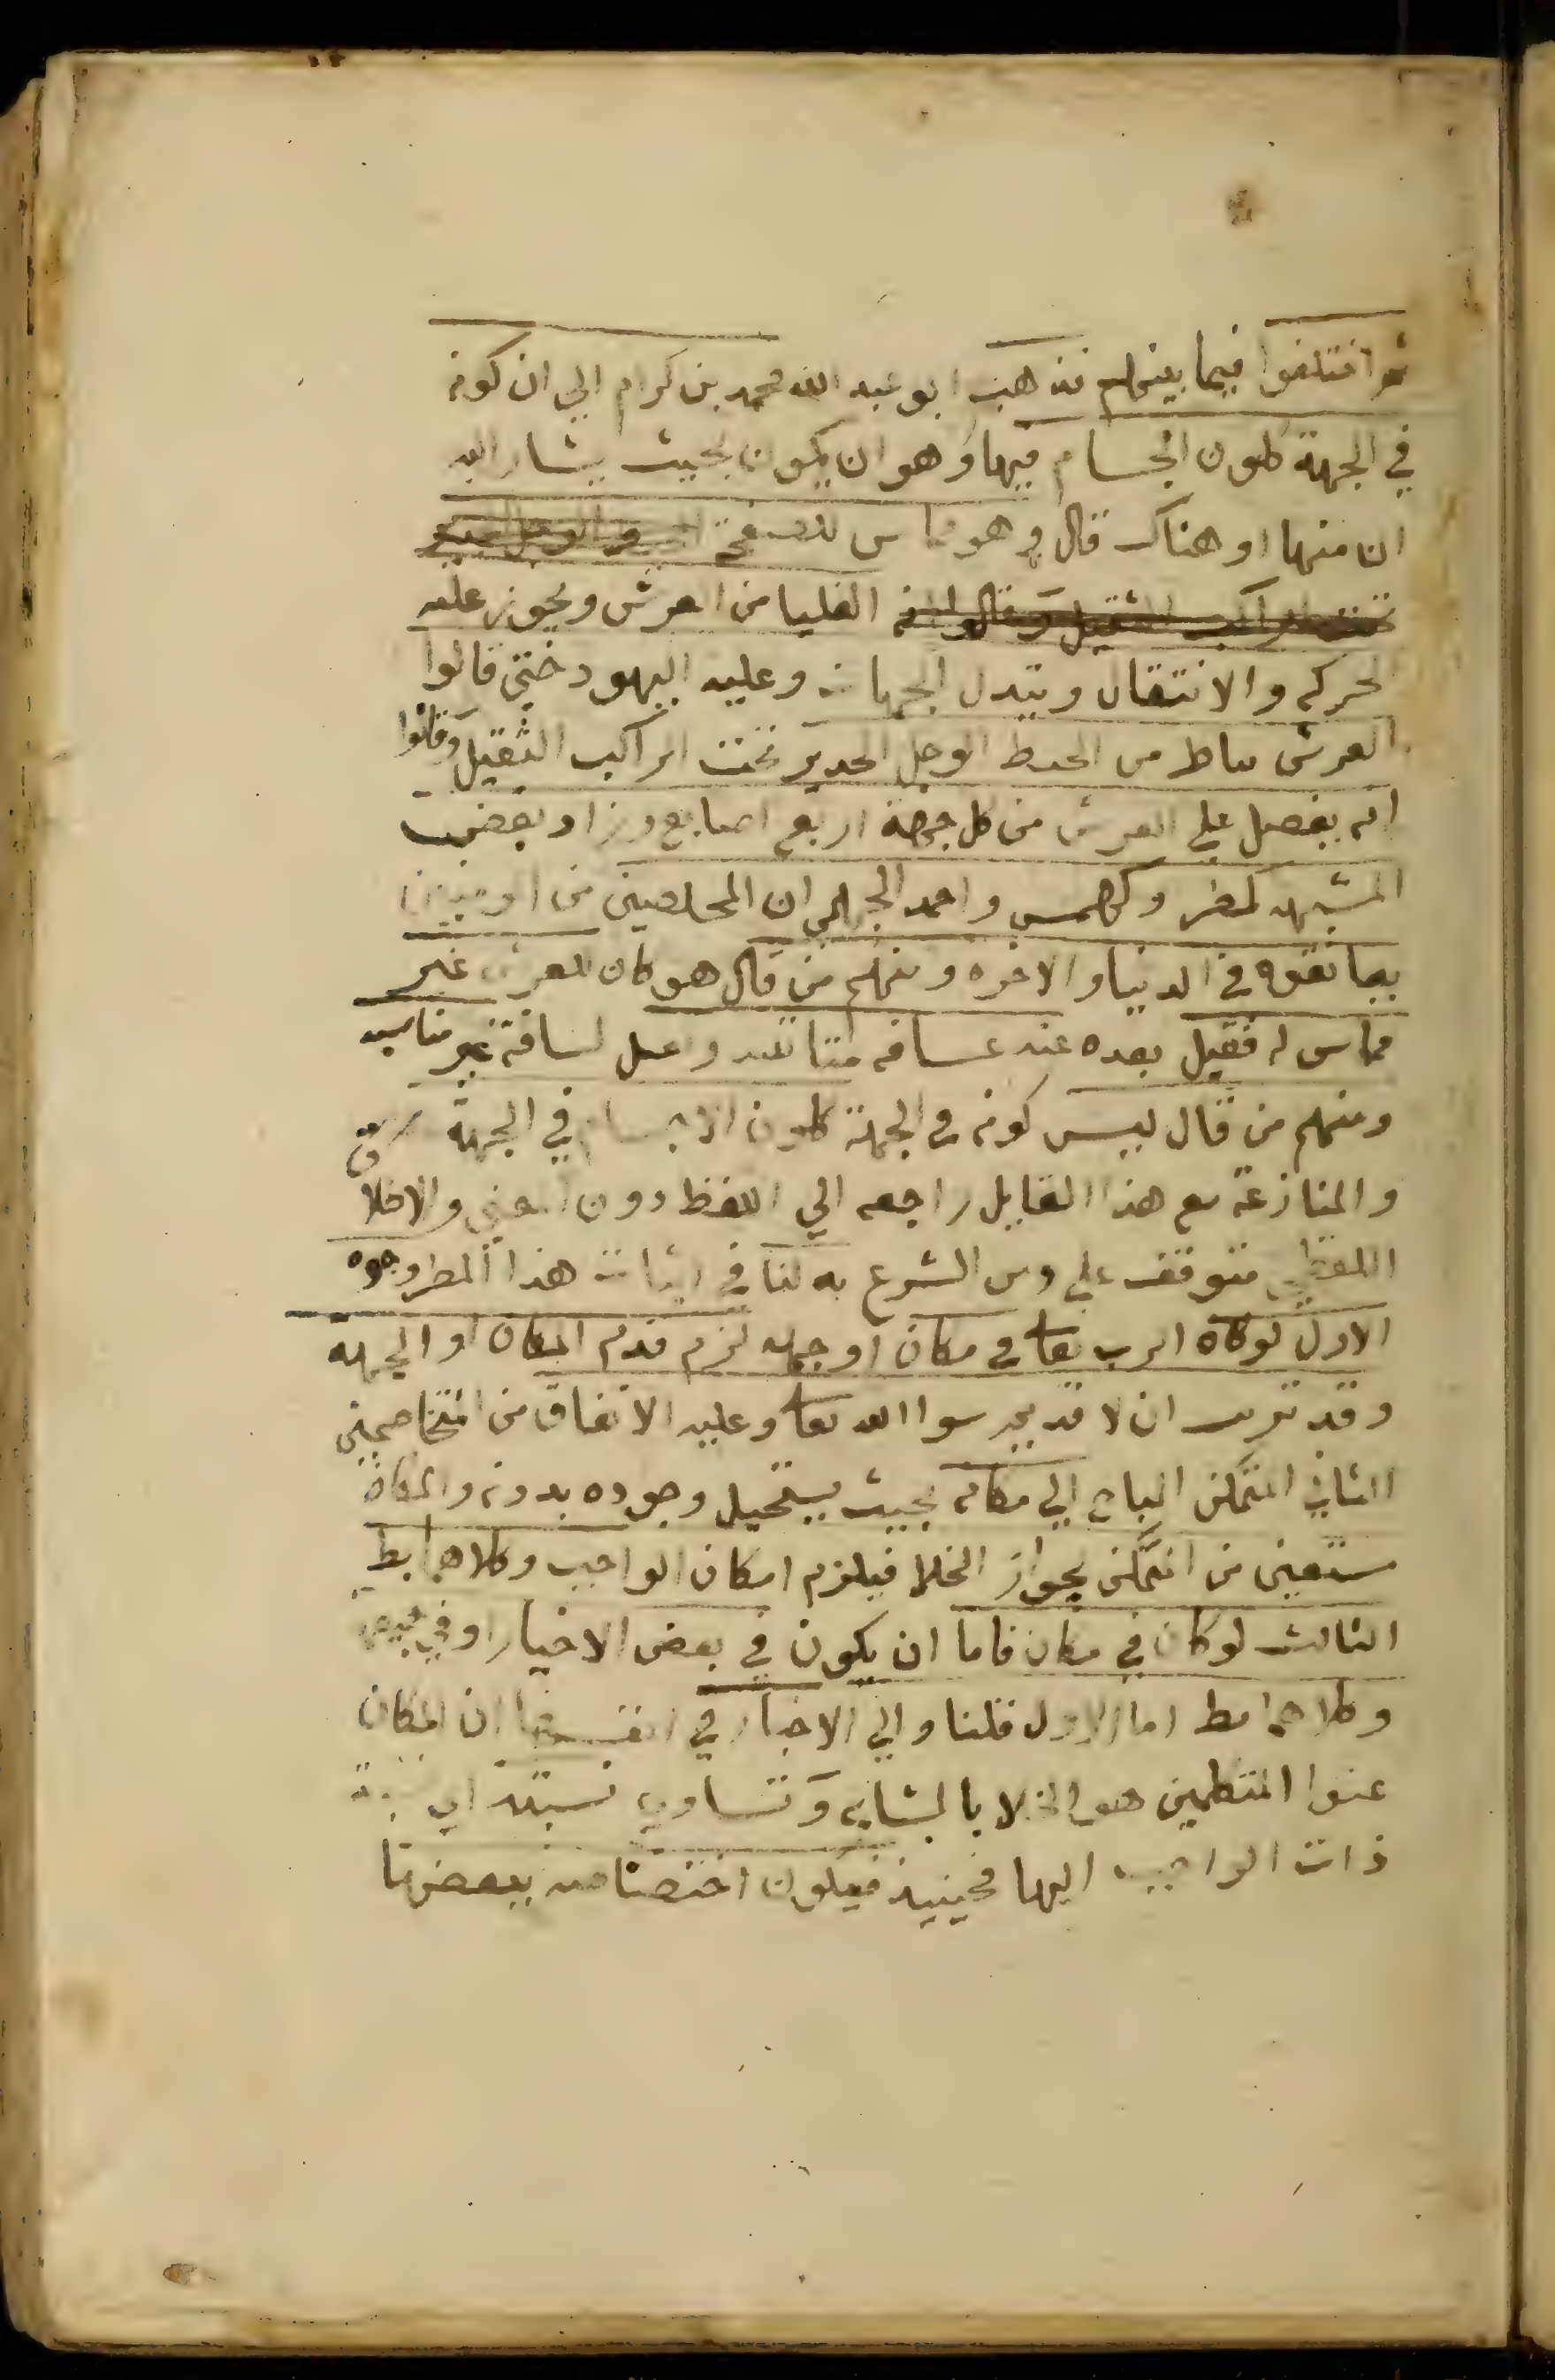 ثم اختلفوا فيما بينهم فذهب ابو عبد الله محمد بن كرام الي ان كونه
في الجهة ككون الاجسام فيها وهو ان يكون بحيث يشار اليه
انه منها او هناك قال وهو مماس للصفحة
العليا من العرش ويجوز عليه
الحركه والانتقال وتبدل الجهات وعليه اليهود حتي قالوا
العرش ياط من اطيط الرحل الجديد تحت الراكب الثقيل وقالوا
انه يفضل علي العرش من كل جهة اربع اصابع وزاد بعض
المشبهه كمضر وكهمس واحمد الجهمي ان المخلصين من
يعانقوه في الدنيا والاخره ومنهم من قال هو كان للعرش غير
مماس له فقيل بعده عنه بمسافه متناهيه وقيل لمسافة غير متناهيه
ومنهم من قال ليس كونه في الجهة ككون الاجسام في الجهة
والمنازعة مع هذا القايل راجعه الي اللفظ دون المعني والاطلاق
اللفظي متوقف علي ورود الشرع به لنا في اثبات هذا المط وجوه
الاول لو كان الرب تعا في مكان او جهه لزم قدم المكان او الجهه
وقد تقرر ان لا قديم سوا الله تعا وعليه الاتفاق من المتخاصمين
الثاني المتمكن محتاج الي مكانه بحيث يستحيل وجوده بدونه والمكان
مستغني عن المتمكن لجواز الخلا فيلزم امكان الواجب وكلاهما بط
الثالث لو كان في مكان فاما ان يكون في بعض الاحياز او في جميعها
وكلاهما بط اما الاول فلتساوي الاحياز في انفسها ان المكان
عند المتكلمين هو الخلا المتشابه وتساوي نسبته اي نسبة
ذات الواجب اليها فحينيذ فيكون اختصاصه ببعضها